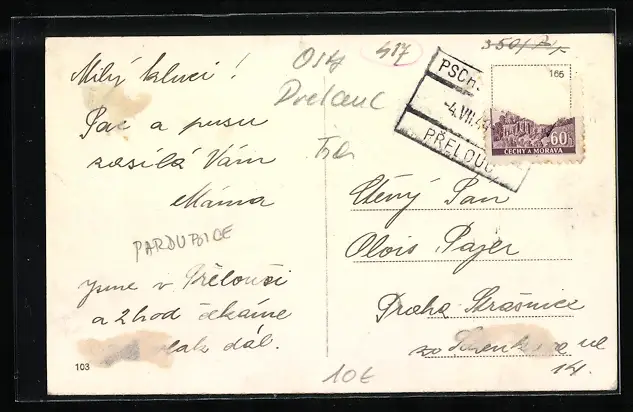 Milý kluci!
Pac a pusu
zasílá Vám
Máma
PARDUBICE
Jsme v Přelouči
a 2 hod čekáme
vlak dál.
103
417
350/
PSCH
-4.VII.
PŘELOUČ
166
60
ČECHY A MORAVA
Ctěný Pan
Alois Pajer
Praha Strašnice
14.
10€